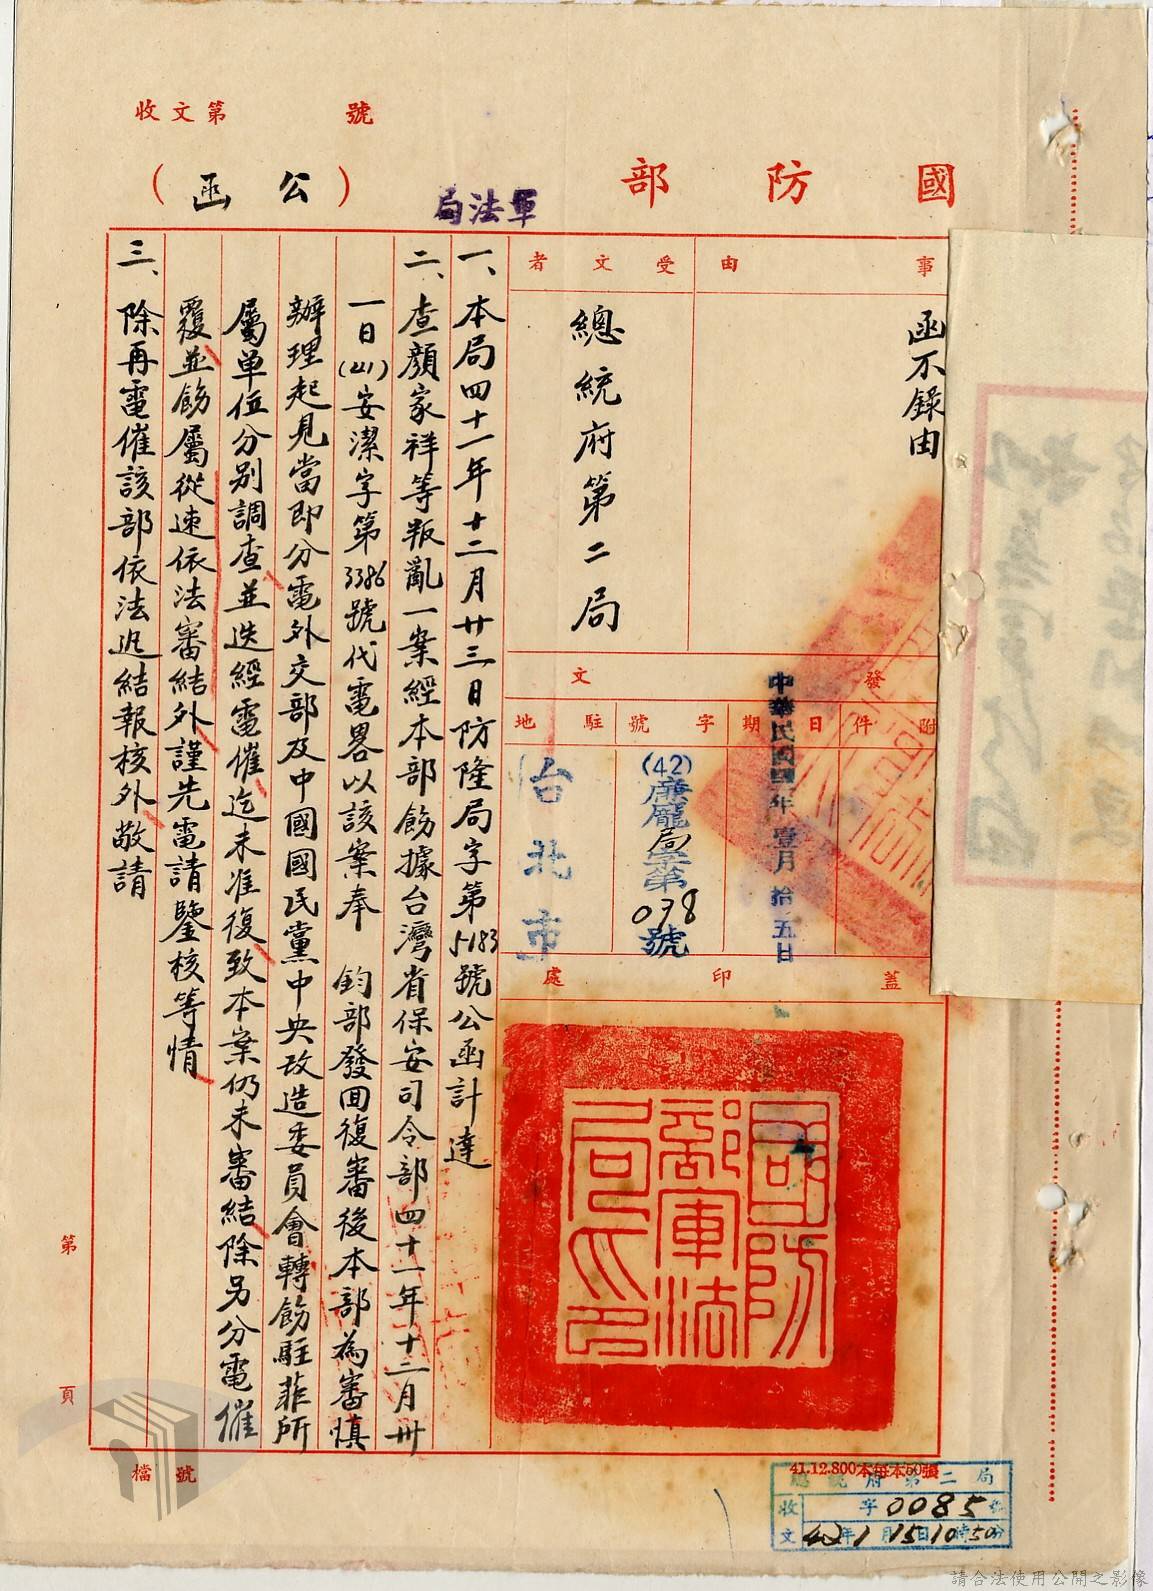 收文第　　號
國防部
軍法局
（公函）
事由
函不錄由
受文者
總統府第二局
發文
附件
日期
中華民國四二年壹月拾五日
字號
(42)廉龐局字第078號
駐地
台北市
蓋印處
國防部軍法局印
一、本局四十一年十二月廿三日防隆局字第5183號公函計達
二、查顏家祥等叛亂一案經本部飭據台灣省保安司令部四十一年十二月卅
一日(41)安潔字第3386號代電畧以該案奉　鈞部發回復審後本部為審慎
辦理起見當即分電外交部及中國國民黨中央改造委員會轉飭駐菲所
屬单位分別調查並迭經電催迄未准復致本案仍未審結除另分電催
覆並飭屬從速依法審結外謹先電請鑒核等情
三、除再電催該部依法迅結報核外敬請
第　頁
檔號
41.12.800本每本50張
總統府第二局
收文
字0085號
42年1月15日10時50分
請合法使用公開之影像